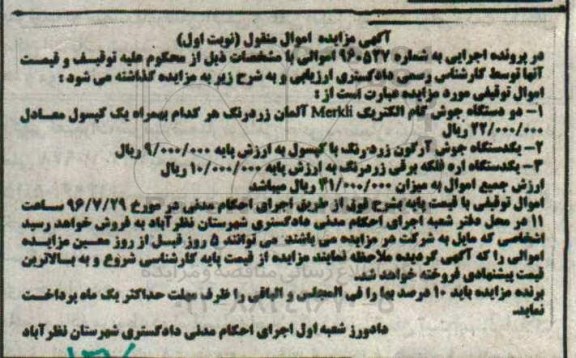 آگهی مزایده اموال منقول (نوبت اول)
در پرونده اجرایی به شماره ۹۶۰۵۲۷ اموالی با مشخصات ذیل از محکوم علیه توقیف و قیمت
آنها توسط کارشناس رسمی دادگستری ارزیابی و به شرح زیر به مزایده گذاشته می شود :
اموال توقیفی مورد مزایده عبارت است از :
۱- دو دستگاه جوش گام الکتریک Merkli آلمان زردرنگ هر کدام بهمراه یک کپسول معادل
۲۲/۰۰۰/۰۰۰ ریال
۲- یکدستگاه جوش آرگون زردرنگ با کپسول به ارزش پایه ۹/۰۰۰/۰۰۰ ریال
۳- یکدستگاه اره فلکه برقی زردرنگ به ارزش پایه ۱۰/۰۰۰/۰۰۰ ریال
ارزش جمیع اموال به میزان ۴۱/۰۰۰/۰۰۰ ریال میباشد
اموال توقیفی با قیمت پایه بشرح فوق از طریق اجرای احکام مدنی در مورخ ۹۶/۷/۲۹ ساعت
۱۱ در محل دفتر شعبه اجرای احکام مدنی دادگستری شهرستان نظرآباد به فروش خواهد رسید
اشخاصی که مایل به شرکت در مزایده می باشند می توانند ۵ روز قبل از روز معین مزایده
اموالی را که آگهی گردیده ملاحظه نمایند مزایده از قیمت پایه کارشناسی شروع و به بالاترین
قیمت پیشنهادی فروخته خواهد شد.
برنده مزایده باید ۱۰ درصد بها را فی المجلس و الباقی را ظرف مهلت حداکثر یک ماه پرداخت
نماید.
دادورز شعبه اول اجرای احکام مدنی دادگستری شهرستان نظرآباد